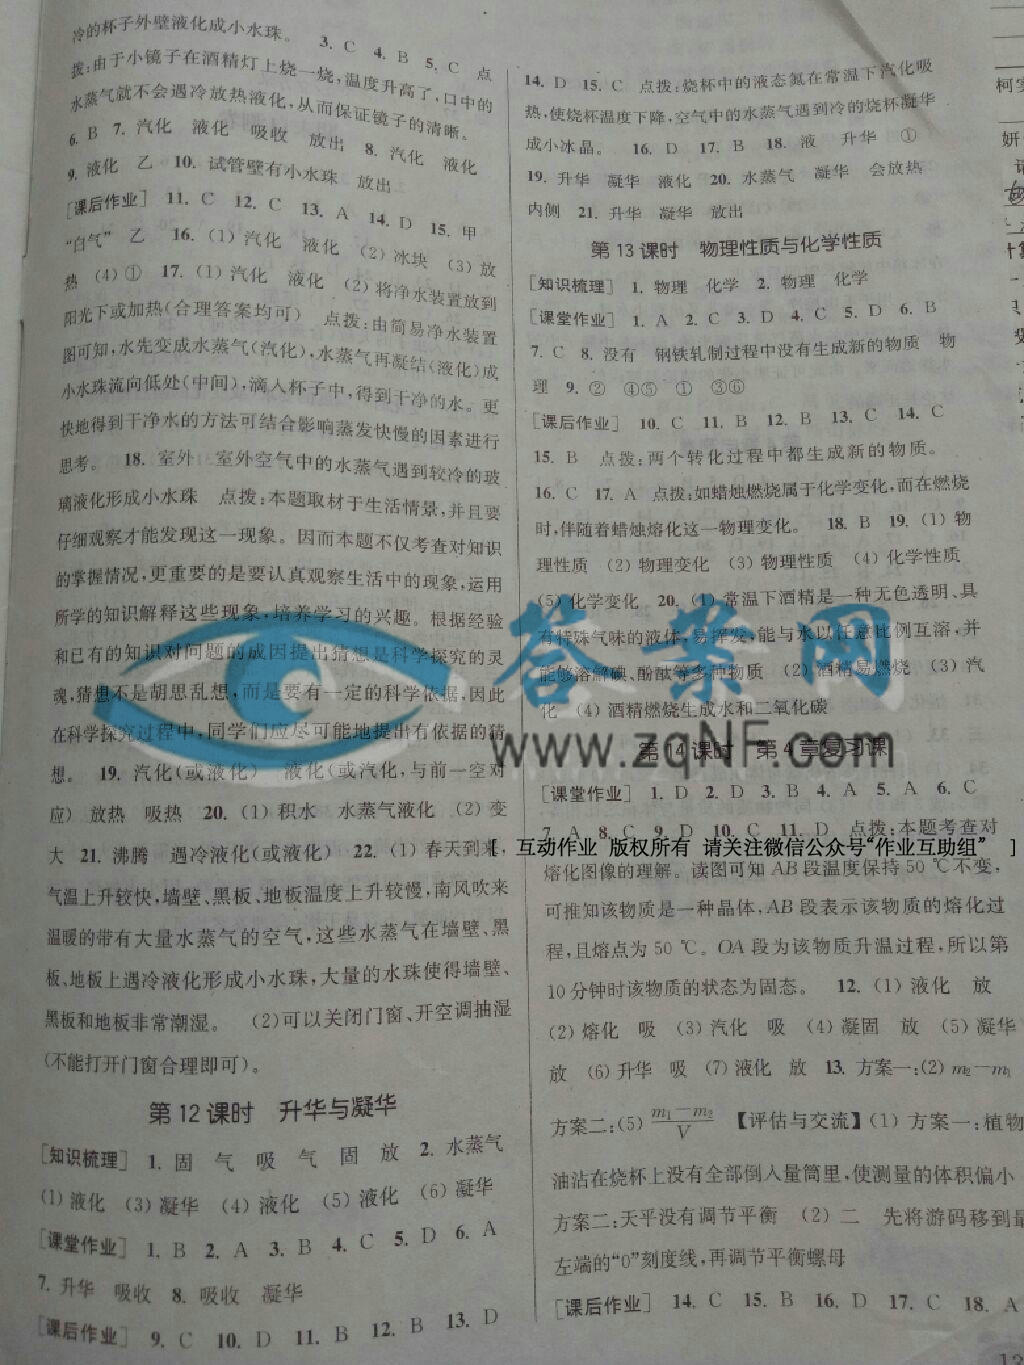 冷的杯子外壁液化成小水珠。 3. C 4. B 5. C 点
拨:由于小镜子在酒精灯上烧一烧,温度升高了,口中的
水蒸气就不会遇冷放热液化,从而保证镜子的清晰。
6. B 7. 汽化 液化 吸收 放出 8. 汽化 液化
9. 液化 乙 10. 试管壁有小水珠 放出
[课后作业] 11. C 12. C 13. A 14. D 15. 甲
“白气” 乙 16. (1) 汽化 液化 (2) 冰块 (3) 放
热 (4) ① 17. (1) 汽化 液化 (2) 将净水装置放到
阳光下或加热(合理答案均可) 点拨:由简易净水装置
图可知,水先变成水蒸气(汽化),水蒸气再凝结(液化)成
小水珠流向低处(中间),滴入杯子中,得到干净的水。更
快地得到干净水的方法可结合影响蒸发快慢的因素进行
思考。 18. 室外 室外空气中的水蒸气遇到较冷的玻
璃液化形成小水珠 点拨:本题取材于生活情景,并且要
仔细观察才能发现这一现象。因而本题不仅考查对知识
的掌握情况,更重要的是要认真观察生活中的现象,运用
所学的知识解释这些现象,培养学习的兴趣。根据经验
和已有的知识对问题的成因提出猜想是科学探究的灵
魂,猜想不是胡思乱想,而是要有一定的科学依据,因此
在科学探究过程中,同学们应尽可能地提出有依据的猜
想。 19. 汽化(或液化) 液化(或汽化,与前一空对
应) 放热 吸热 20. (1) 积水 水蒸气液化 (2) 变
大 21. 沸腾 遇冷液化(或液化) 22. (1) 春天到来,
气温上升较快,墙壁、黑板、地板温度上升较慢,南风吹来
温暖的带有大量水蒸气的空气,这些水蒸气在墙壁、黑
板、地板上遇冷液化形成小水珠,大量的水珠使得墙壁、
黑板和地板非常潮湿。 (2)可以关闭门窗、开空调抽湿
(不能打开门窗合理即可)。
第 12 课时 升华与凝华
[知识梳理] 1. 固 气 吸 气 固 放 2. 水蒸气
(1) 液化 (3) 凝华 (4) 液化 (5) 液化 (6) 凝华
[课堂作业] 1. B 2. A 3. B 4. C 5. D 6. A
7. 升华 吸收 8. 吸收 凝华
[课后作业] 9. C 10. D 11. B 12. B 13. D
14. D 15. C 点拨:烧杯中的液态氮在常温下汽化吸
热,使烧杯温度下降,空气中的水蒸气遇到冷的烧杯凝华
成小冰晶。 16. D 17. B 18. 液 升华 ①
19. 升华 凝华 液化 20. 水蒸气 凝华 会放热
内侧 21. 升华 凝华 放出
第 13 课时 物理性质与化学性质
[知识梳理] 1. 物理 化学 2. 物理 化学
[课堂作业] 1. A 2. C 3. D 4. C 5. D 6. B
7. C 8. 没有 钢铁轧制过程中没有生成新的物质 物
理 9. ② ④⑤ ① ③⑥
[课后作业] 10. C 11. B 12. B 13. C 14. C
15. B 点拨:两个转化过程中都生成新的物质。
16. C 17. A 点拨:如蜡烛燃烧属于化学变化,而在燃烧
时,伴随着蜡烛熔化这一物理变化。 18. B 19. (1) 物
理性质 (2) 物理变化 (3) 物理性质 (4) 化学性质
(5) 化学变化 20. (1) 常温下酒精是一种无色透明、具
有特殊气味的液体,易挥发,能与水以任意比例互溶,并
能够溶解碘、酚酞等多种物质 (2) 酒精易燃烧 (3) 汽
化 (4) 酒精燃烧生成水和二氧化碳
答案网
www.zqNF.com
第 14 课时 第 4 章复习课
[课堂作业] 1. D 2. D 3. B 4. A 5. A 6. C
7. A 8. C 9. D 10. C 11. D 点拨:本题考查对
[ 互动作业 版权所有 请关注微信公众号“作业互助组” ]
熔化图像的理解。读图可知 AB 段温度保持 50 ℃不变,
可推知该物质是一种晶体,AB 段表示该物质的熔化过
程,且熔点为 50 ℃。OA 段为该物质升温过程,所以第
10 分钟时该物质的状态为固态。 12. (1) 液化 放
(2) 熔化 吸 (3) 汽化 吸 (4) 凝固 放 (5) 凝华
放 (6) 升华 吸 (7) 液化 放 13. 方案一:(2) m₂－m₁
方案二:(5) (m₁－m₂)/V 【评估与交流】(1) 方案一:植物
油沾在烧杯上没有全部倒入量筒里,使测量的体积偏小
方案二:天平没有调节平衡 (2) 二 先将游码移到最
左端的“0”刻度线,再调节平衡螺母
[课后作业] 14. C 15. B 16. D 17. C 18. A
柯实
妍